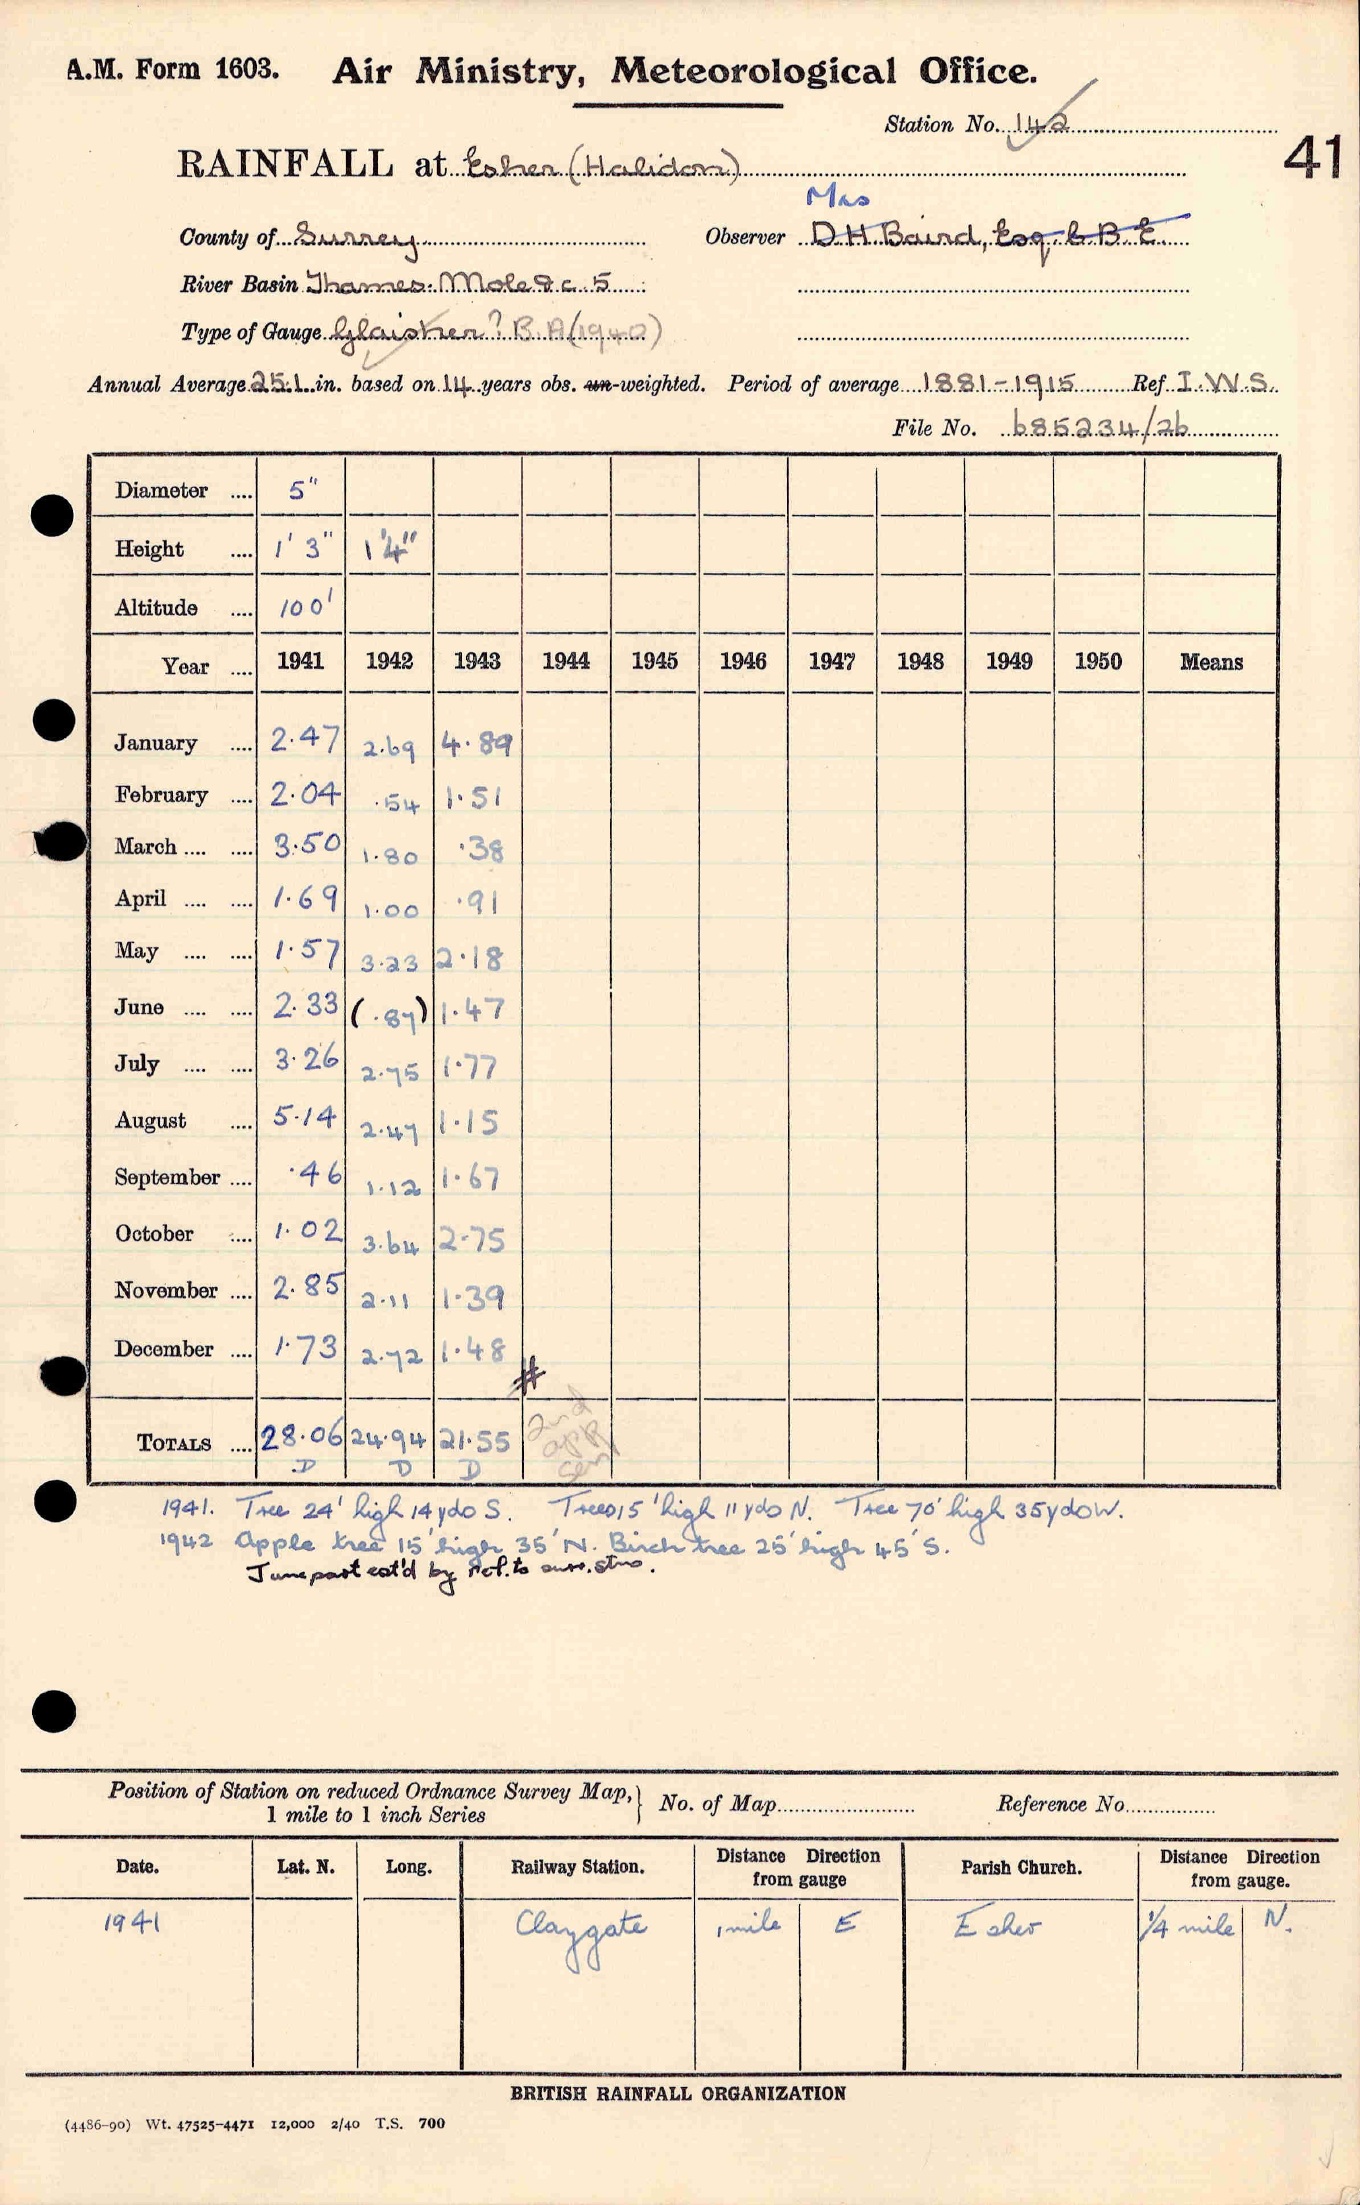 A.M. Form 1603. Air Ministry, Meteorological Office.
Station No. 142
41
RAINFALL at Esher (Halidon)
Mrs
County of Surrey Observer D.H. Baird, Esq. C.B.E.
River Basin Thames. Mole &c. 5
Type of Gauge Glaisher? B.A (1940)
Annual Average 25.1 in. based on 14 years obs. un-weighted. Period of average 1881-1915 Ref. I.W.S.
File No. 685234/26
Diameter .... 5"
Height .... 1' 3" 1'4"
Altitude .... 100'
Year .... 1941 1942 1943 1944 1945 1946 1947 1948 1949 1950 Means
January .... 2.47 2.69 4.89
February .... 2.04 .54 1.51
March .... .... 3.50 1.80 .38
April .... .... 1.69 1.00 .91
May .... .... 1.57 3.23 2.18
June .... .... 2.33 (.87) 1.47
July .... .... 3.26 2.75 1.77
August .... 5.14 2.47 1.15
September .... .46 1.12 1.67
October .... 1.02 3.64 2.75
November .... 2.85 2.11 1.39
December .... 1.73 2.72 1.48
#
TOTALS .... 28.06 24.94 21.55 2nd app sent
D D D
1941. Tree 24' high 14 yds S. Trees 15' high 11 yds N. Tree 70' high 35 yds W.
1942 Apple tree 15' high 35' N. Birch tree 25' high 45' S.
June part est'd by ref. to surr. stns.
Position of Station on reduced Ordnance Survey Map, 1 mile to 1 inch Series } No. of Map Reference No.
Date. Lat. N. Long. Railway Station. Distance Direction from gauge Parish Church. Distance Direction from gauge.
1941 Claygate 1 mile E Esher 1/4 mile N.
BRITISH RAINFALL ORGANIZATION
(4486-90) Wt. 47525-4471 12,000 2/40 T.S. 700